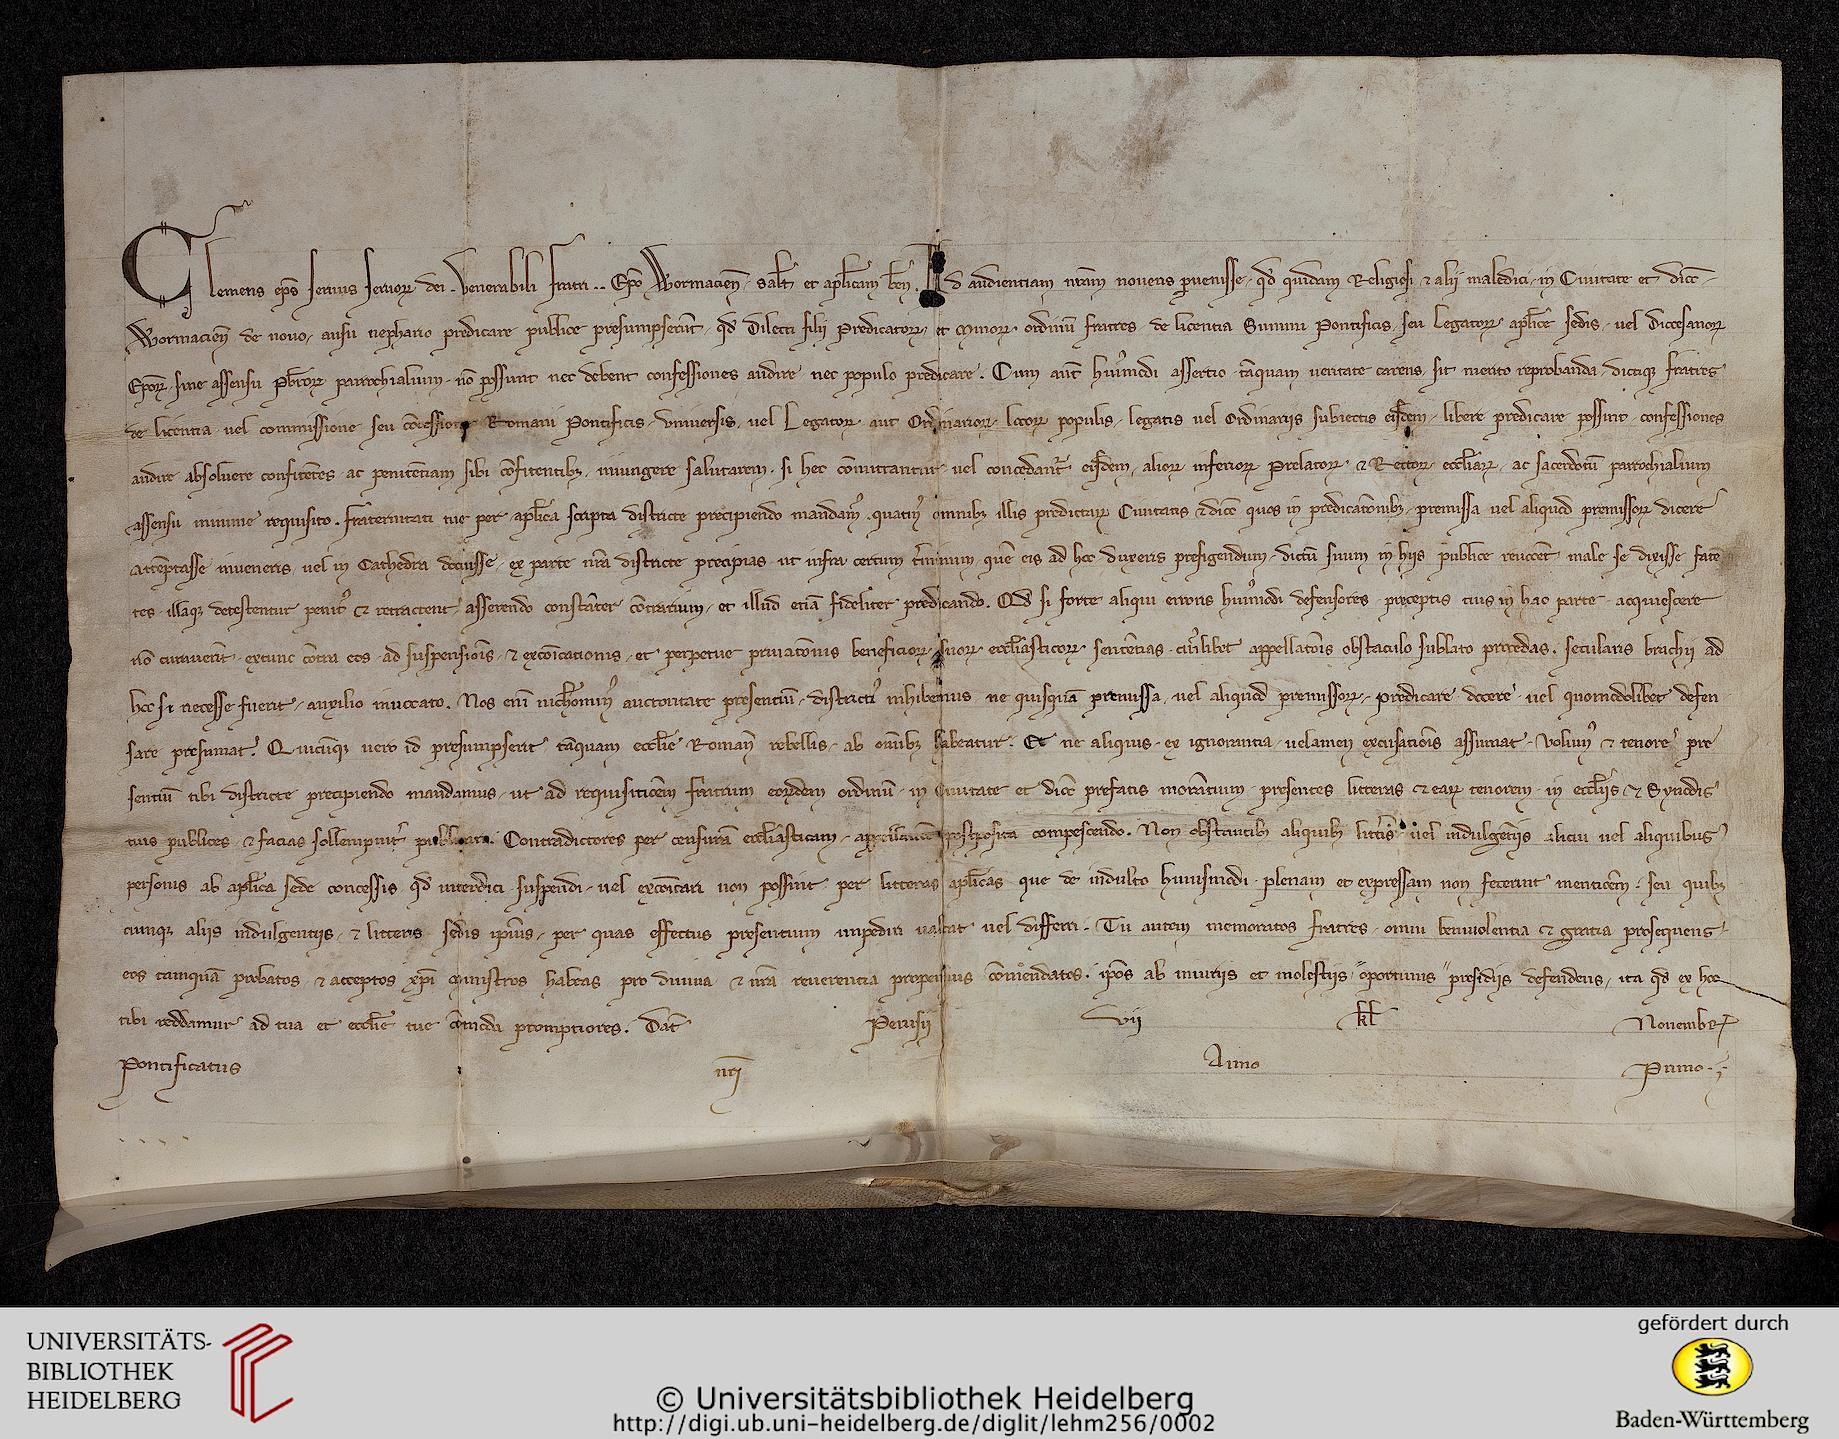 Clemens ep̄s seruus seruorꝝ dei. Venerabili fratri .. Ep̄o Wormacien̄. Salt̄ et apl̄icam ben̄. Ad audientiam nr̄am noueris peruenisse, qd̄ quidam Religiosi ⁊ alij maledici, in Ciuitate et dioc̄.
Wormacien̄ de nouo, ausu nephario predicare publice presumpserūt, qd̄ dilecti filij Predicatorꝝ, et Minorꝝ ordinū fratres de licentia Summi Pontificis, seu Legatorꝝ apl̄ice sedis, uel diocesanorꝝ
Ep̄orꝝ, sine assensu Pbr̄orꝝ parrochialium, nō possunt nec debent confessiones audire nec populo predicare. Cum aut̄ hui᷒modi assertio tāquam ueritate carens, sit merito reprobanda, dictiqꝫ fratres
de licentia uel commissione seu cōcessione Romani Pontificis, vniuersis, uel Legatorꝝ aut Ordinariorꝝ locorꝝ populis, legatis uel Ordinarijs subiectis eisdem, libere predicare possint, confessiones
audire absoluere confitētes ac penitētiam sibi cōfitentibꝫ, iniungere salutarem, si hec cōmittantur uel concedant᷑ eisdem, aliorꝝ inferiorꝝ Prelatorꝝ ⁊ Rectorꝝ eccl̄iarꝝ, ac sacerdotū parrochialium
assensu minime requisito. fraternitati tue per apl̄ica scripta districte precipiendo mandam᷒, quatin᷒ omnibꝫ illis predictarꝝ Ciuitatis ⁊ dioc̄ quos in predicatōnibꝫ, premissa uel aliquod premissorꝝ dicere
attēptasse inueneris, uel in Cathedra docuisse, ex parte nr̄a districte precipias ut infra certum t̄minum quē eis ad hoc duxeris prefigendum, dictū suum in hijs publice reuocēt male se dixisse faten
tes, illaqꝫ detestentur penit᷒ ⁊ retractent, asserendo constāter cōtrarium, et illud etiā fideliter predicando. Qd̄ si forte aliqui erroris hui᷒modi defensores, preceptis tuis in hac parte, acquiescere
nō curauerīt, extunc cōtra eos, ad suspensiōis, ⁊ excōicationis, et perpetue priuatōnis beneficiorꝝ suorꝝ eccl̄iasticorꝝ, sentētias, cui᷒libet appellatōis obstaculo sublato procedas, secularis brachij ad
hoc si necesse fuerit, auxilio inuocato. Nos enī nichomin᷒ auctoritate presentiū, districti᷒ inhibemus ne quisquā premissa, uel aliquod premissorꝝ, predicare docere, uel quomodolibet defen
sare presumat. Quicūqꝫ uero id presumpserit tāquam eccl̄ie Roman̄ rebellis, ab omībꝫ habeatur. Et ne aliquis, ex ignorantia, uelamen excusatiōis assumat, volum᷒ ⁊ tenore pre
sentiū tibi districte precipiendo mandamus, ut ad requisitiōem fratrum eorꝝdem ordinū, in Ciuitate et dioc̄ prefatis morātium, presentes litteras ⁊ earꝝ tenorem, in eccl̄ijs, ⁊ Synodis
tuis publices, ⁊ facias sollempnit᷑ publicari. Contradictores per censurā eccl̄iasticam, appellatiōe postposita compescendo. Non obstantibꝫ aliquibꝫ litt̄is uel indulgētijs alicui uel aliquibus
personis ab apl̄ica sede concessis qd̄ interdici suspendi, uel excōicari non possint per litteras apl̄icas que de indulto huiusmodi, plenam et expressam non fecerint mentiōem, seu quibꝫ
cunqꝫ alijs indulgentijs, ⁊ litteris sedis ip̄ius, per quas effectus presentium impediri ualeat uel differri. Tu autem memoratos fratres, omni beniuolentia ⁊ gratia prosequens,
eos tamquā probatos ⁊ acceptos xp̄i ministros habeas pro diuina ⁊ nr̄a reuerentia propensius cōmēdatos, ip̄os ab iniurijs et molestijs, oportunis presidijs defendens, ita qd̄ ex hoc
tibi reddamur ad tua et eccl̄ie tue cōmoda promptiores. Dat̄ Perusij vij kl̄ Nouembrꝝ
Pontificatus nr̄i Anno Primo
UNIVERSITÄTS-
BIBLIOTHEK
HEIDELBERG
© Universitätsbibliothek Heidelberg
http://digi.ub.uni-heidelberg.de/diglit/lehm256/0002
gefördert durch
Baden-Württemberg